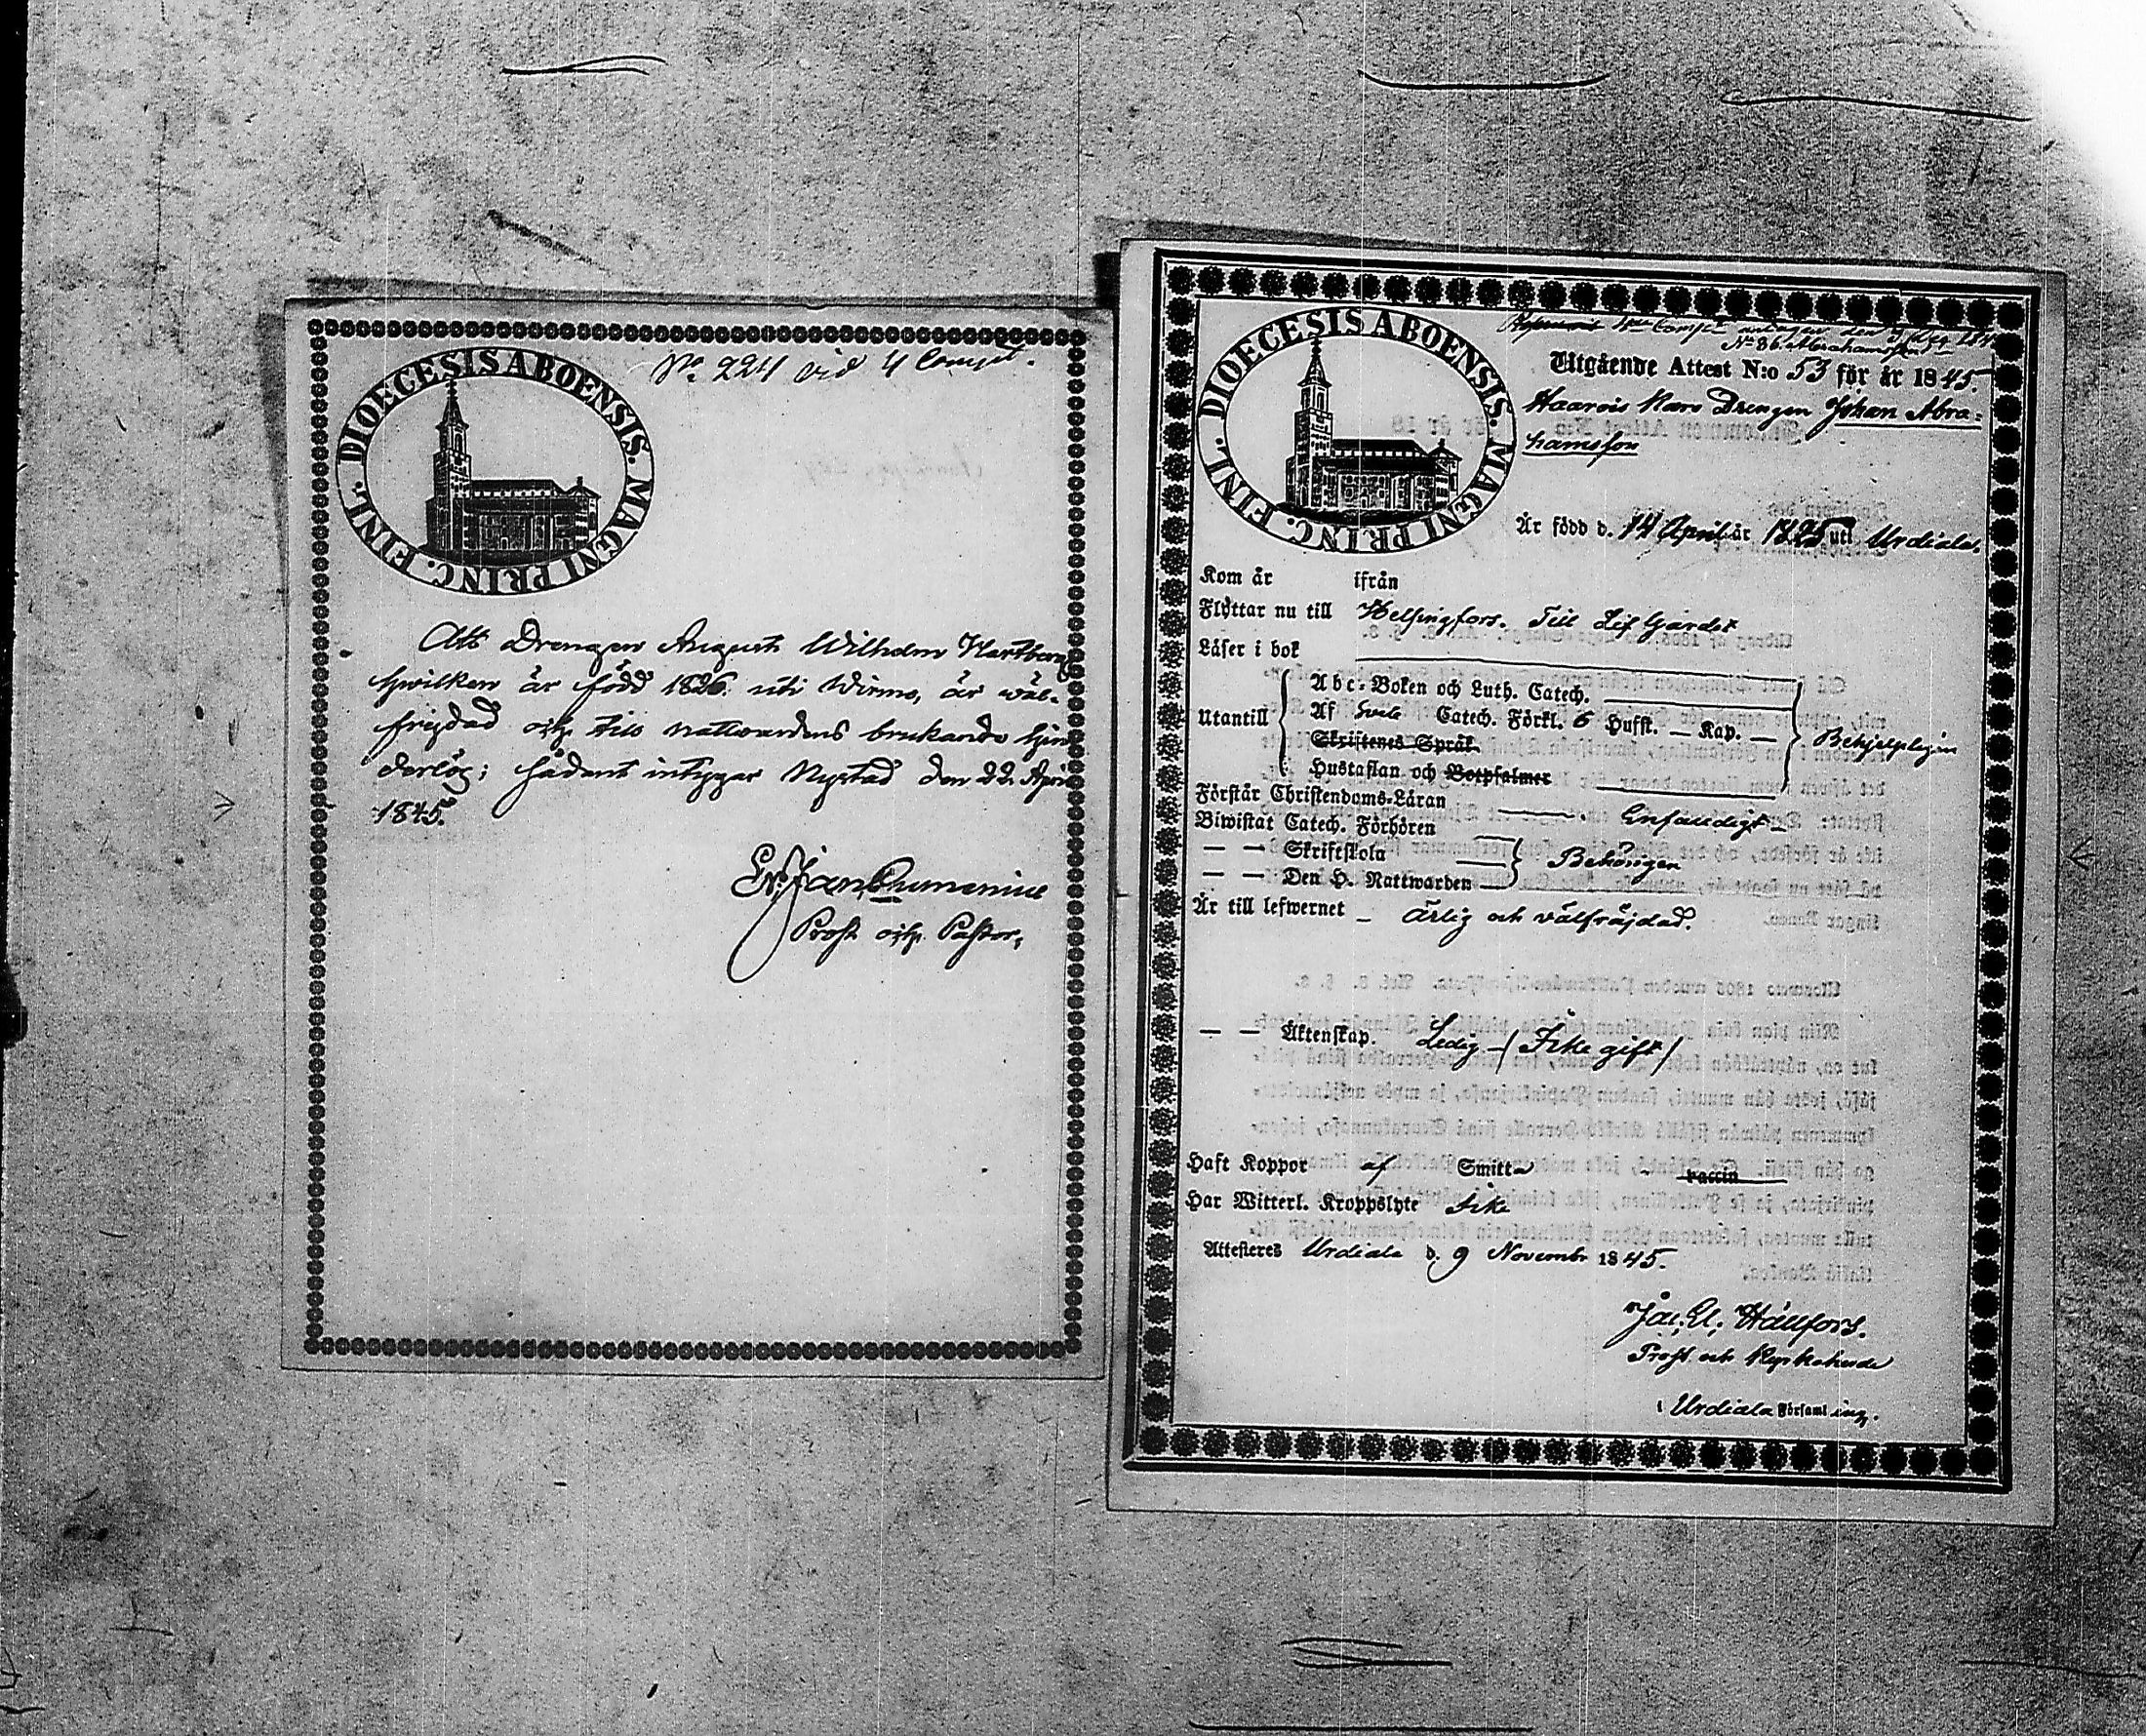 DIOECESIS ABOENSIS. MAGNI PRINC. FINL.
No 224 vid 4 Comp.
Att Drengen August Wilhelm Hartberg
hwilken är född 1826 uti Wirmo, är wäl-
frejdad och till nattwardens brukande hin
derlös; sådant intygar Nystad den 22 April
1845.
Prost och Pastor.
DIOECESIS ABOENSIS. MAGNI PRINC. FINL.
antagen den
No 86. Abrahamsson
Utgående Attest N:o 53 för år 1845.
Haarois Karo Drengen Johan Abra-
hamsson
Är född d. 14 April år 1825 uti Urdiala.
Kom år ifrån
Flyttar nu till Helsingfors. Till Lif Gardet
Läser i bok
Utantill
Abc-Boken och Luth. Catech.
Af Svebe Catech. Förkl. 6 Hufst. — Kap. —
Skriftenes Språk
Hustaflan och Botpsalmer
Behjelpligen
Förstår Christendoms-Läran Enfaldigt
Biwistat Catech. Förhören
— — Skriftskola
— — Den H. Nattwarden
Behörigen
Är till lefwernet — ärlig och välfräjdad.
— — Äktenskap. Ledig — (Icke gift)
Haft Koppor af Smitta vaccin
Har Witterl. Kroppslyte Icke
Attesteras Urdiala d. 9 Novembr 1845.
Hällfors.
Prost och Kyrkoherde
i Urdiala Församling.